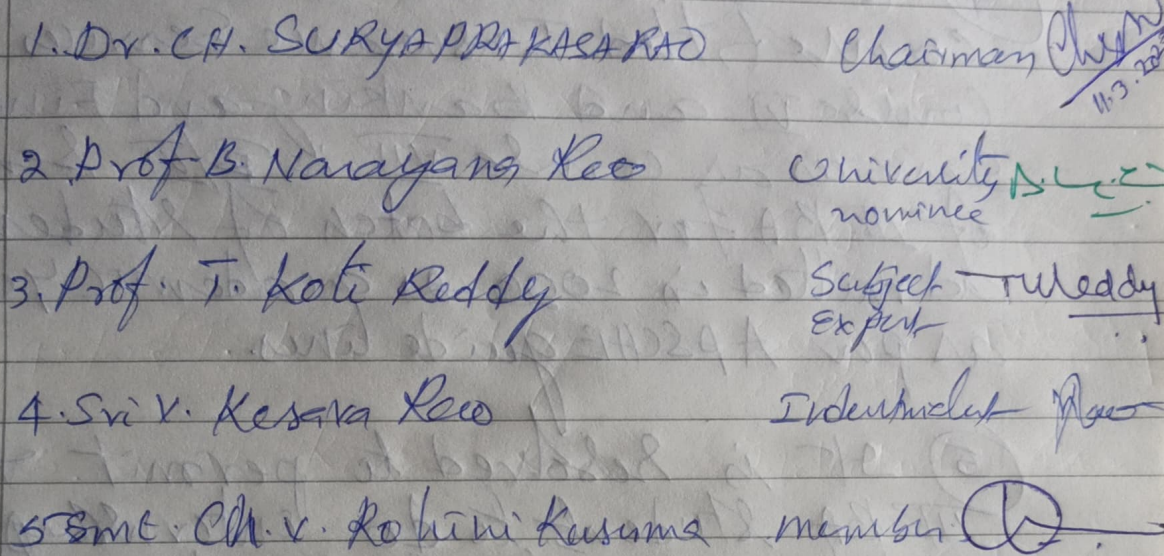 1. Dr. CH. SURYAPRAKASA RAO Chairman
11.3.202
2 Prof B. Narayana Rao University
nominee
3. Prof. T. Koti Reddy Subject TKReddy
Expert
4. Sri V. Kesava Rao Rao
5 Smt. Ch. V. Rohini Kusuma member